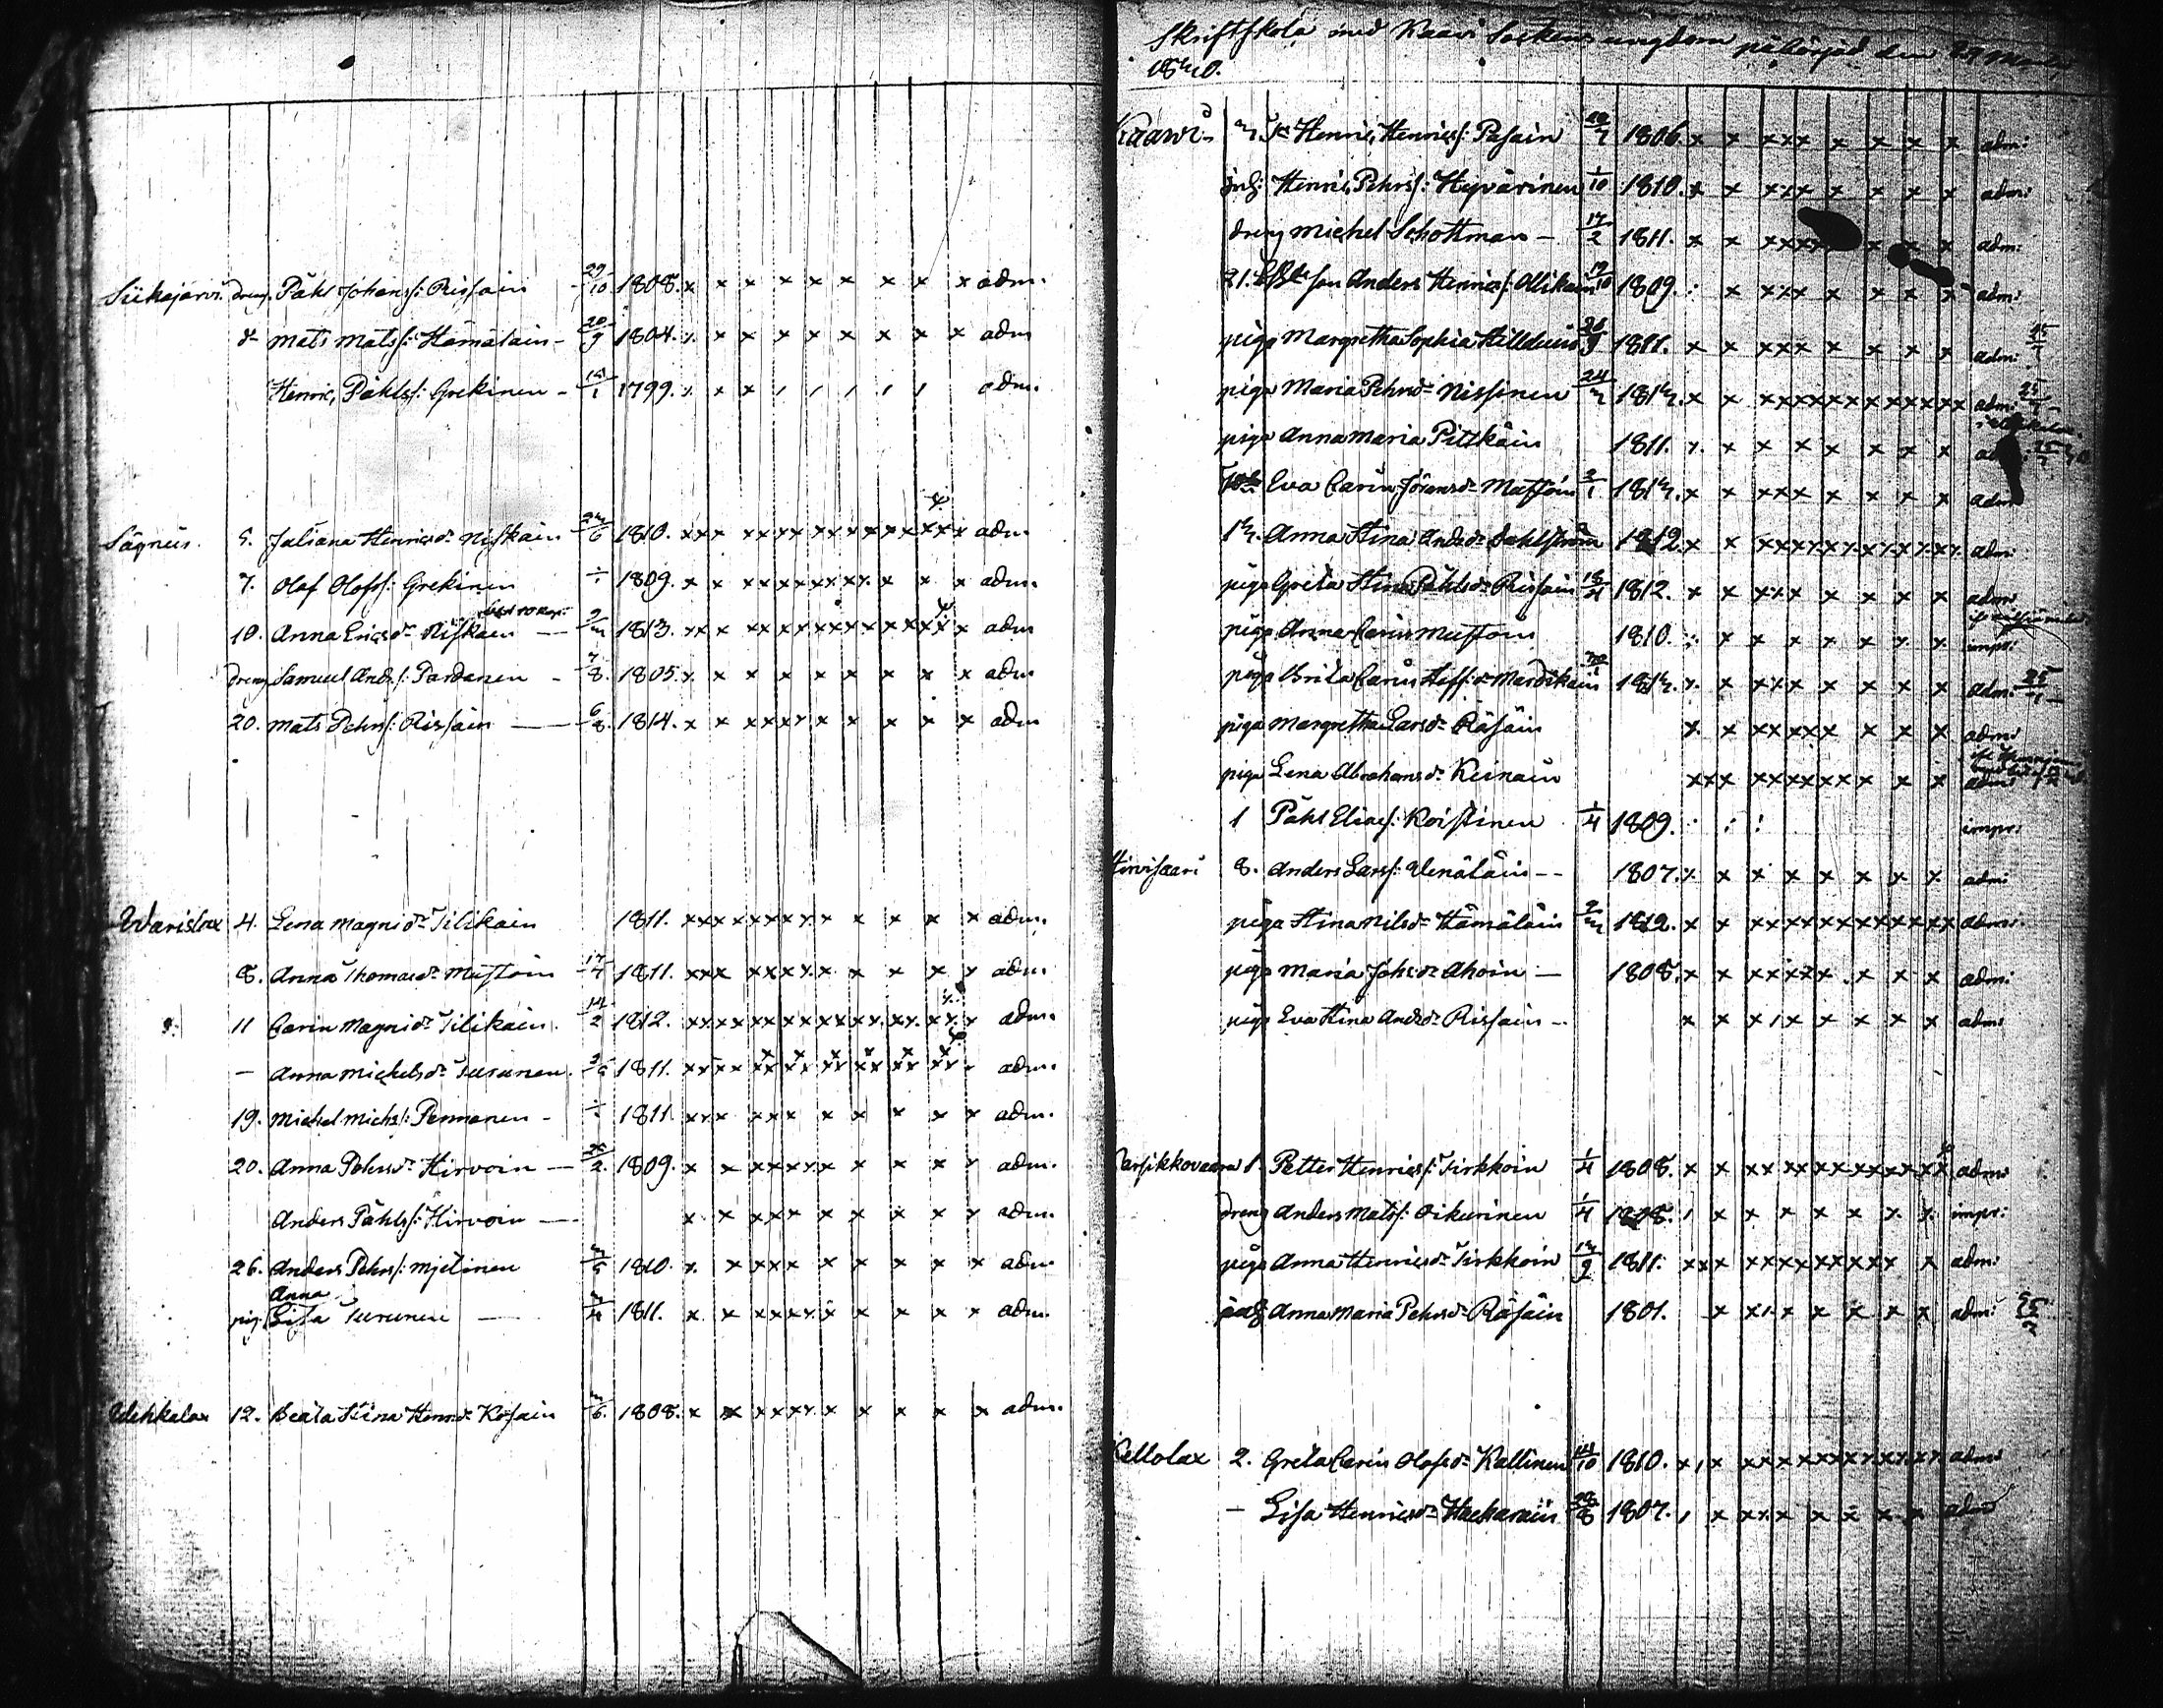 Siikajärvi. dreng. Påhl Johans/: Rissain 29/10 1808. x x x x x x x x x adm.
d- Mats Mats/: Hämäläin - 20/9 1804. x x x x x x x x adm
Henric, Påhls/: Grekinen - 1799. x x x adm.
Sägneis. 5. Juliana Henricsdr Niskain 1810. xxx xxxx xxxxxx xxx adm.
7. Olof Olofs/: Grekinen 1809. x x xxxxxxx x x x adm.
10. Anna Ericsdr Niskain 1813. xx x xxxxxxxxxxxx x adm
dreng Samuel And/: Pardanen - 1805. x x x x x x x x x adm
20. Mats Pehrs/: Rissain 6/8 1814. x x xxxx x x x x x adm
Warislax 4. Lena Magnidr Tilikain 1811. xxxxxxxxx x x x x adm.
8. Anna Thomasdr Mustoin 17/4 1811. xxx xxxxx x x x x adm.
11 Carin Magnidr Tilikain. 14/2 1812. xxxx xx xxxxxx xx xx x adm.
- Anna Michelsdr Turunen. 1811. xxxx xx xx xx xx xx xx adm.
19. Michel Michs/: Pennanen - 1811 xxx xxx x x x x x adm.
20. Anna Pehrsdr Hirvoin 1809. x x xxxx x x x x x adm.
Anders Påhls/: Hirvoin x x xxxx x x x x x adm.
26. Anders Pehrs/: Mjelinen 1810. x x xxxx x x x x x adm
Anna
pig. Lisa Turunen 1811. x x xxxx x x x x x adm.
Wehkalax 12. Beata Stina Henrdr Kosain 1808. x x xxxx x x x x x adm.
Skriftskola med Kaavi Sockens ungdom påbörjad den 29 Martii
Kaavi- Henric, Henrics/: Pasain 1806. x x xxx x x x x adm:
inh: Henric, Pehrs/: Hyvärinen 1/10 1810. x x xxx x x x x adm:
dreng Michel Schottman - 17/2 1811. x x xxxx x x x adm:
21. son Anders Henrics/: Ollikain 1809. : x xxx x x x x adm:
piga Margretha Sophia 1811. x x xxx x x x x adm:
piga Maria Pehrsdr Nissinen x x xxxxxxxxxxxx adm:
piga Anna Maria Pitkäin 1811. x x x x x x x x
Eva Carin Jöransdr Mustoin x x xxx x x x x adm
Anna Stina Andsdr Dahlström 1812 x x xxxxxxxxxxxx adm:
piga Greta Stina Påhlsdr Rissain 18/4 1812. x x xxx x x x x adm
piga Anna Carin Mustoin 1810. : x x x x x x x impr:
piga Brita Carin Staff:dr Mardikain x x xxx x x x x adm:
piga Margretha Larsdr Räsäin x x xxxxx x x x adm
piga Lena Abrahamsdr Keinäin xxx xxxxxxx x x adm
1 Påhl Elias/: Koistinen 1/4 1809. : : : impr:
Hirvisaari 8. Anders Lars/: Venäläin -- 1807. x x x x x x x x adm
piga Stina Nilsdr Hämäläin 1812. x x xxxxxxxxxxxx adm.
piga Maria Joh:dr Ahoin - 1808. x x xxxxx x x x adm:
piga Eva Stina Andsdr Rissain - x x x x x x x x adm
Carsikkovaara 1 Petter Henrics/: Tirkkoin 1/4 1808. x x xx xxxxxxxxxx adm
dreng Anders Mats/: Oikarinen 1/4 1808. x x x x x x x impr:
piga Anna Henricsdr Tirkkoin 1811. xxx xxxxxxxxx x adm:
inh: Anna Maria Pehrsdr Räsäin 1801. x xx x x x x x adm:
Kellolax 2. Greta Carin Olofsdr Kallinen 14/10 1810. x x xxxxxxxxxxxx adm
- Lisa Henricsdr 28/8 1807. x xxx x x x x adm